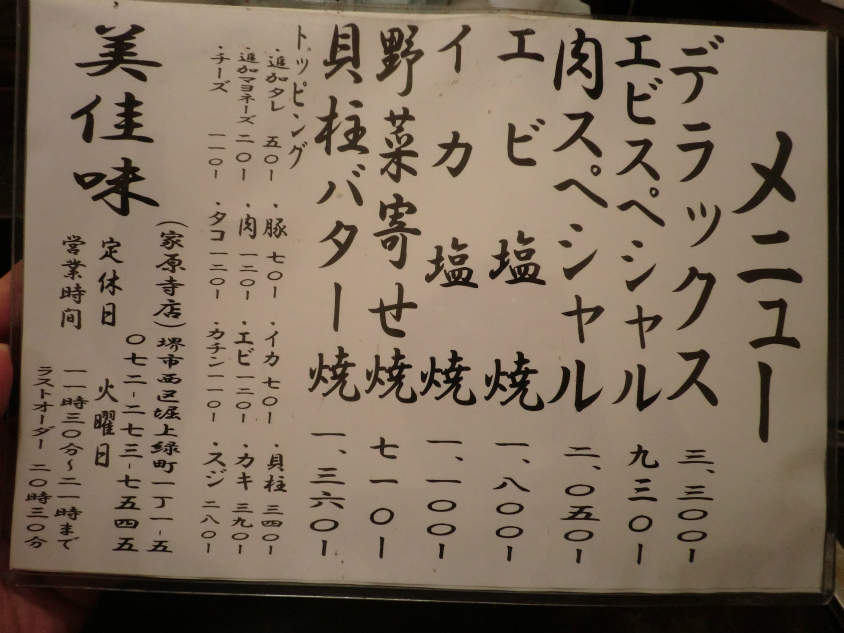 メニュー
デラックス 三、三〇〇ー
エビスペシャル 九三〇ー
肉スペシャル 二、〇五〇ー
エビ塩焼 一、八〇〇ー
イカ塩焼 一、一〇〇ー
野菜寄せ焼 七一〇ー
貝柱バター焼 一、三六〇ー
トッピング
・追加タレ 五〇ー ・豚 七〇ー ・イカ 七〇ー ・貝柱 三四〇ー
・追加マヨネーズ 二〇ー ・肉 一二〇ー ・エビ 一二〇ー ・カキ 三九〇ー
・チーズ 一一〇ー ・タコ 一二〇ー ・カチン 一一〇ー ・スジ 二八〇ー
美佳味
(家原寺店)堺市西区堀上緑町一丁一-五
〇七二-二七三-七五四五
定休日 火曜日
営業時間 一一時三〇分〜二一時まで
ラストオーダー 二〇時三〇分